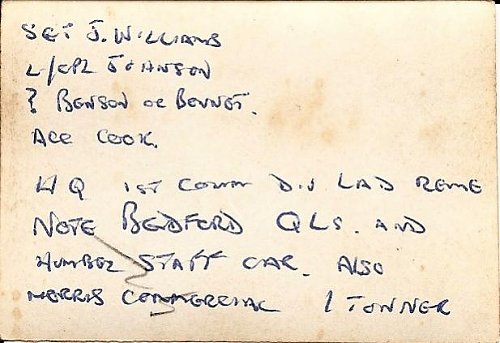 SGT J. WILLIAMS
L/CPL JOHNSON
? BENSON OR BENNET.
ACC COOK.
H Q 1ST COMM DIV LAD REME
NOTE BEDFORD QLs. AND
HUMBER STAFF CAR. ALSO
MORRIS COMMERCIAL 1 TONNER